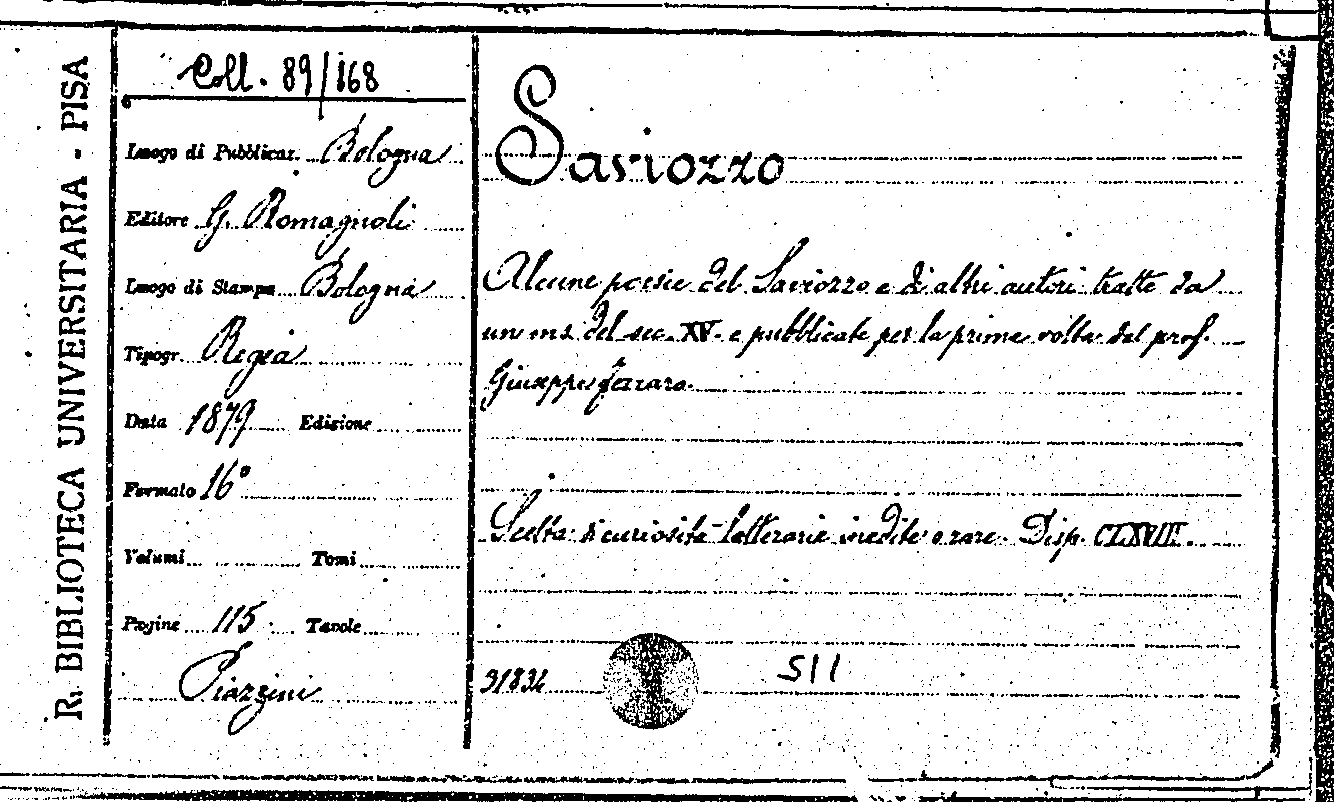 R. BIBLIOTECA UNIVERSITARIA - PISA
Coll. 89/168
Luogo di Pubblicaz. Bologna
Editore G. Romagnoli
Luogo di Stampa Bologna
Tipogr. Regia
Data 1879 Edizione
Formato 16°
Volumi Tomi
Pagine 115. Tavole
Piazzini
Saviozzo
Alcune poesie del Saviozzo e di altri autori tratte da
un ms. del sec. XV. e pubblicate per la prima volta dal prof.
Giuseppe Ferraro.
Scelta di curiosità letterarie inedite o rare. Disp. CLXVIII.
31834
S11